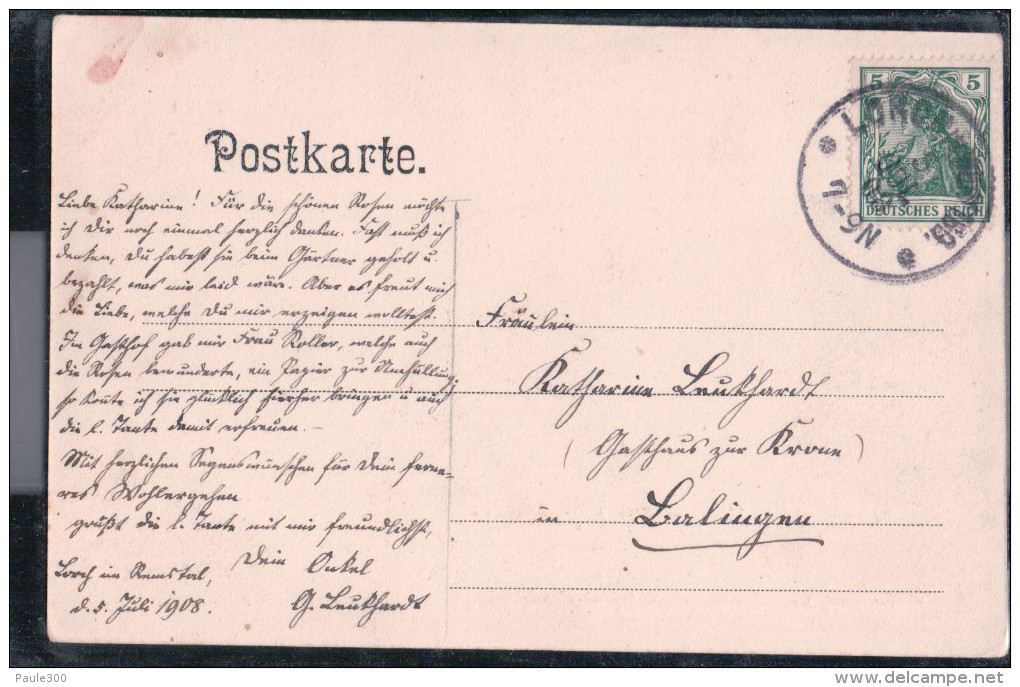 Postkarte.
Liebe Katharine! Für die schönen Rosen möchte
ich Dir noch einmal herzlich danken. Fast muß ich
denken, Du habest sie beim Gärtner geholt u.
bezahlt, was mir leid wäre. Aber es freut mich
die Liebe, welche Du mir erzeigen wolltest.
Im Gasthof gab mir Frau Roller, welche auch
die Rosen bewunderte, ein Papier zur Umhüllung;
so konnte ich sie glücklich hierher bringen u. auch
die l. Tante damit erfreuen. –
Mit herzlichen Segenswünschen für Dein ferne=
res Wohlergehen
grüßt die l. Tante mit mir freundlichst,
Dein Onkel
G. Leukhardt
Lorch im Remstal,
d. 5. Juli 1908.
5 5
DEUTSCHES REICH
7-9N
Fräulein
Katharine Leukhardt
(Gasthaus zur Krone)
in Balingen
Paule300